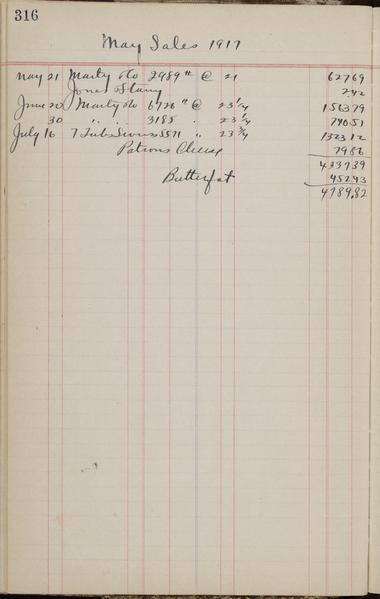 316
May Sales 1917
May 21 Marty & Co 2989 # @ 21 62769
Jones 242
June 20 Marty & Co 6726 " @ 23 1/4 156379
30 " " " 3185 " 23 1/4 74051
July 16 7 Tubs Swiss 5571 " 23 3/4 132312
Patrons Cheese 7986
433739
Butterfat 45243
4789.82